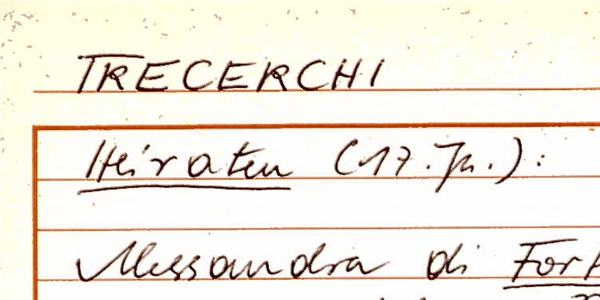 TRECERCHI
Heiraten (17. Jh.):
Alessandra di